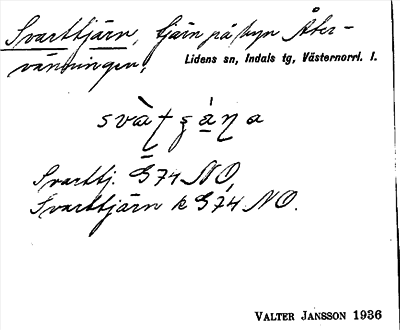 Svarttjärn, tjärn på byn Åter-
vänningen, Lidens sn, Indals tg, Västernorrl. l.
Svarttj. G 74 NO,
Svarttjärn k G 74 NO.
VALTER JANSSON 1936